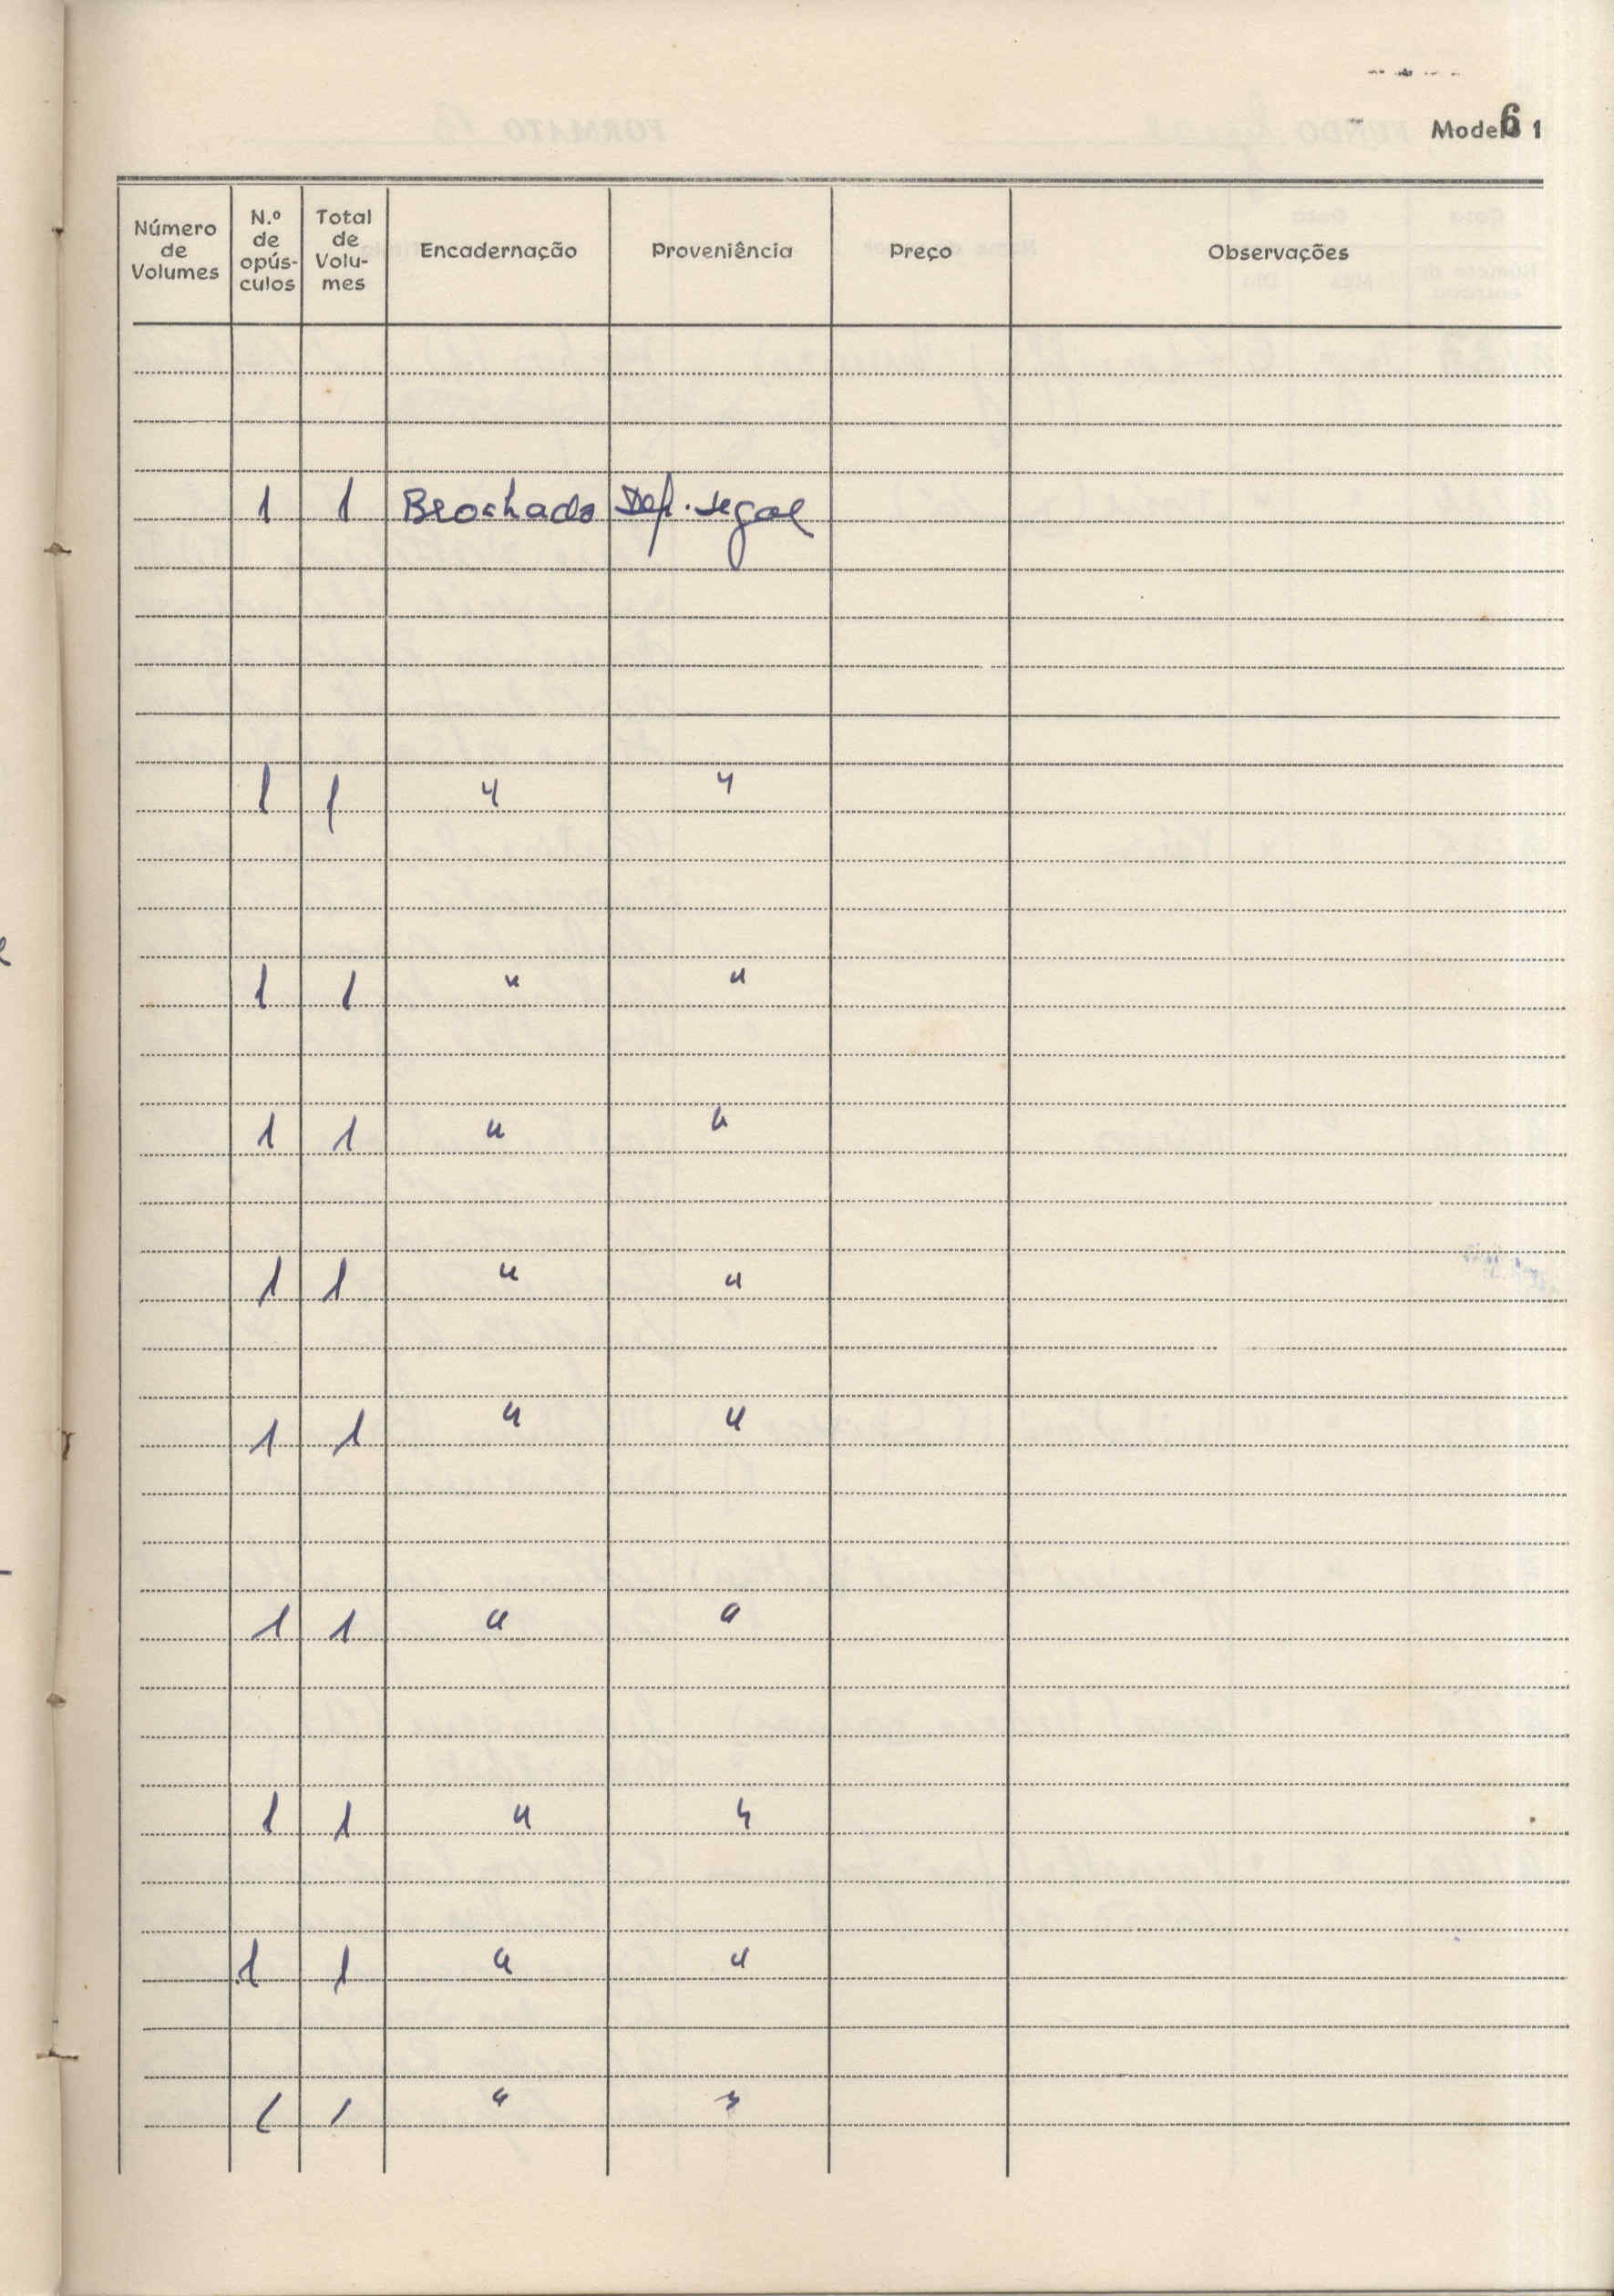 Modelo 1
6
Número de Volumes
N.º de opús-culos
Total de Volu-mes
Encadernação
Proveniência
Preço
Observações
1 1 Brochado Dep. Legal
1 1 " "
1 1 " "
1 1 " "
1 1 " "
1 1 " "
1 1 " "
1 1 " "
1 1 " "
1 1 " "